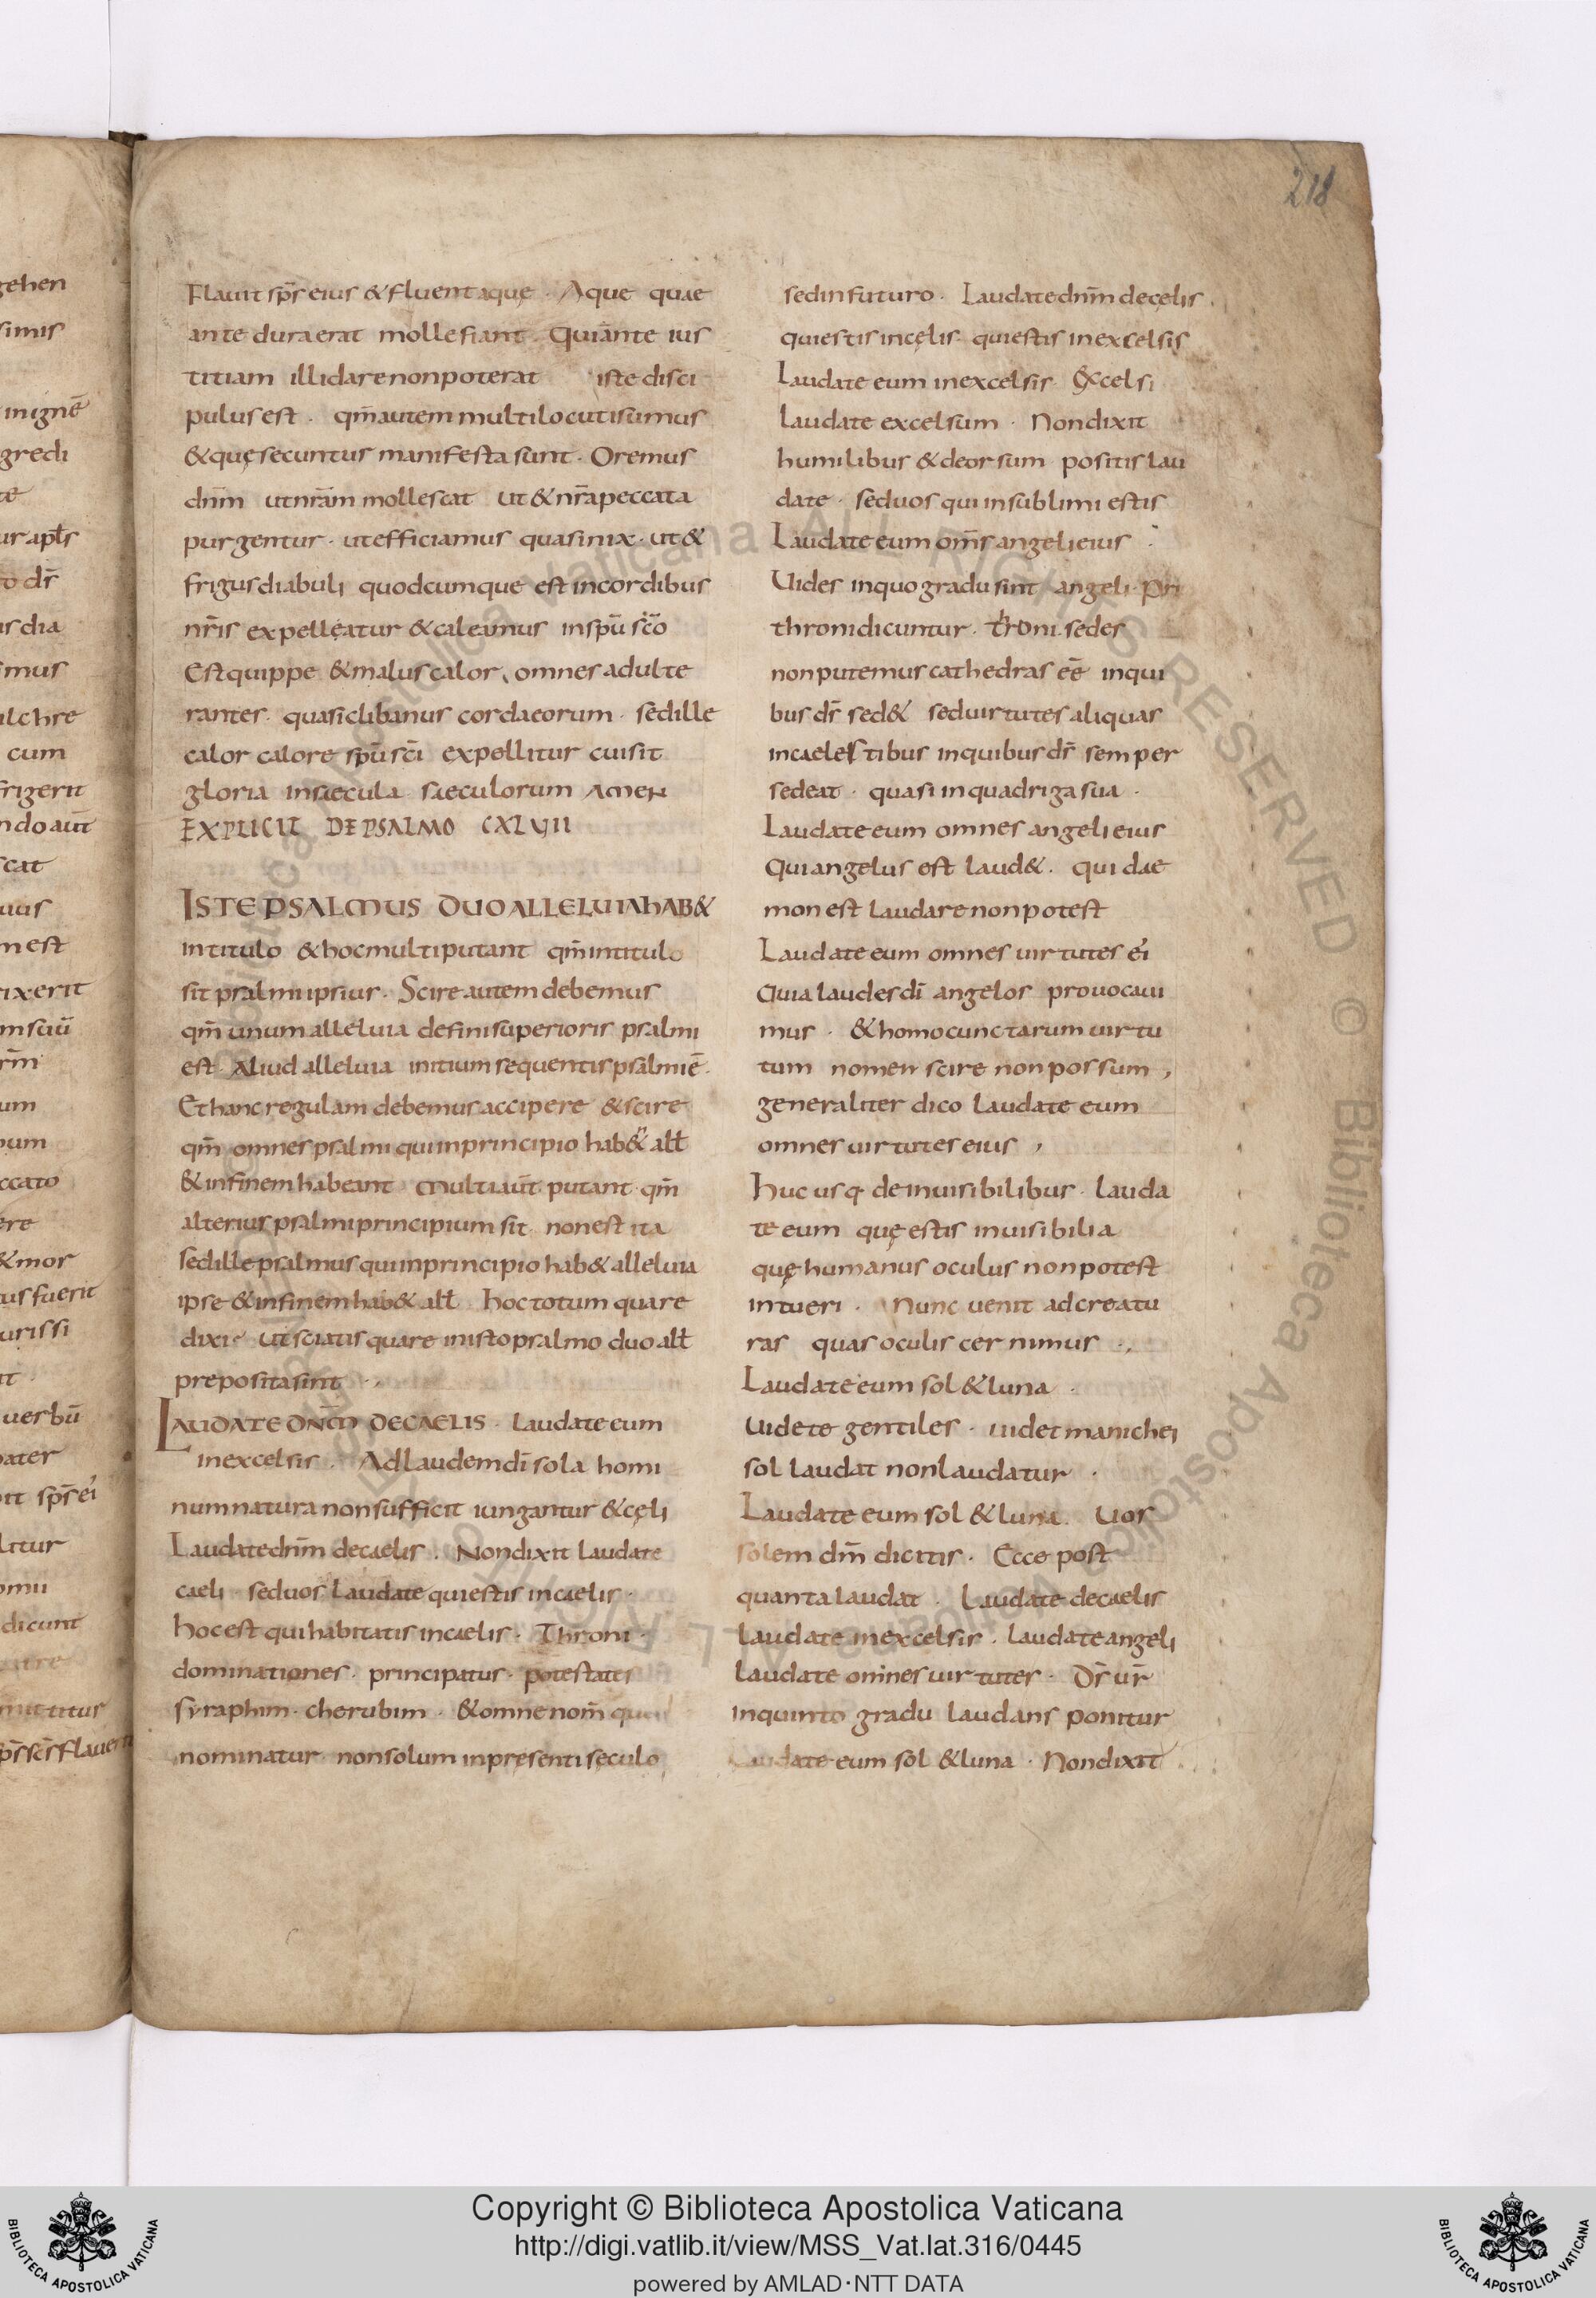 218
gehen
simis
inignē
gredi
te
ur apłs
dr̄
us dia
mus
ulchre
cum
frigerit
ndo aut̄
scat
uus
m est
ixerit
um
ccato
ere
& mor
tus fuerit
urissi
uerbū
pater
sps̄ ei
litur
dicunt
mittitur
Flauit sps̄ eius & fluent aquę · Aque quae
ante dura erat molle fiant · Qui ante ius
titiam illi dare non poterat iste disci
pulus est · qm̄ autem multi locuti sumus
& quę secuntur manifesta sunt · Oremus
dnm̄ ut nrā mollescat ut & nrā peccata
purgentur · ut efficiamur quasi nix · ut &
frigus diabuli quodcumque est in cordibus
nrīs expelleatur & caleamus in spū scō
Est quippe & malus calor, omnes adulte
rantes · quasi clibanus corda eorum · sed ille
calor calore spū sci expellitur cui sit
gloria in saecula saeculorum AMEN
EXPLICIT DE PSALMO CXLVII
ISTE PSALMUS DUO ALLELUIA HAB&
in titulo & hoc multi putant qm̄ in titulo
sit psalmi ipsius · Scire autem debemus
qm̄ unum alleluia de fini superioris psalmi
est · Aliud alleluia initium sequentis psalmi ē ·
Et hanc regulam debemus accipere & scire
qm̄ omnes psalmi qui in principio hab& all̄
& in finem habeant · Multi aut̄ putant qm̄
alterius psalmi principium sit · non est ita
sed ille psalmus qui in principio hab& alleluia
ipse & in finem hab& all̄ hoc totum quare
dixi · ut sciatis quare in isto psalmo duo all̄
preposita sint · ,
LAUDATE DNM̄ DE CAELIS · Laudate eum
in excelsis · Ad laudem di sola homi
num natura non sufficit iungantur & cęli
Laudate dnm̄ de caelis · Non dixit laudate
caeli · sed uos laudate qui estis in caelis ·
hoc est qui habitatis in caelis · Throni ·
dominationes · principatus · potestates
syraphim · cherubim · & omne nom̄ quod
nominatur non solum in pręsenti sęculo
sed in futuro · Laudate dnm̄ de cęlis ·
qui estis in cęlis · qui estis in excelsis
Laudate eum in excelsis · Excelsi
laudate excelsum · Non dixit
humilibus & deorsum positis lau
date · sed uos qui in sublimi estis
Laudate eum om̄s angeli eius ·
Uides in quo gradu sint angeli · Pri
throni dicuntur · troni · sedes
non putemus cathedras eē in qui
bus dr̄ sed& sed uirtutes aliquas
in caelestibus in quibus dr̄ semper
sedeat · quasi in quadriga sua ·
Laudate eum omnes angeli eius
Qui angelus est laud& · qui dae
mon est laudare non potest
Laudate eum omnes uirtutes ei
Quia laudes di angelos prouocaui
mus · & homo cunctarum uirtu
tum nomen scire non possum ,
generaliter dico laudate eum
omnes uirtutes eius ,
Huc usq· de inuisibilibus · lauda
te eum quę estis inuisibilia
quę humanus oculus non potest
intueri · Nunc uenit ad creatu
ras quas oculis cernimus · ,
Laudate eum sol & luna ·
Uidete gentiles · uidet manichei
sol laudat non laudatur ·
Laudate eum sol & luna · Uos
solem dm̄ dicitis · Ecce post
quanta laudat · Laudate de caelis
laudate in excelsis · laudate angeli
laudate omnes uirtutes · Ds̄ ur̄
in quinto gradu laudans ponitur
Laudate eum sol & luna · Non dixit
© Biblioteca Apostolica Vaticana ALL RIGHTS RESERVED
Copyright © Biblioteca Apostolica Vaticana
http://digi.vatlib.it/view/MSS_Vat.lat.316/0445
powered by AMLAD·NTT DATA
BIBLIOTECA APOSTOLICA VATICANA
BIBLIOTECA APOSTOLICA VATICANA